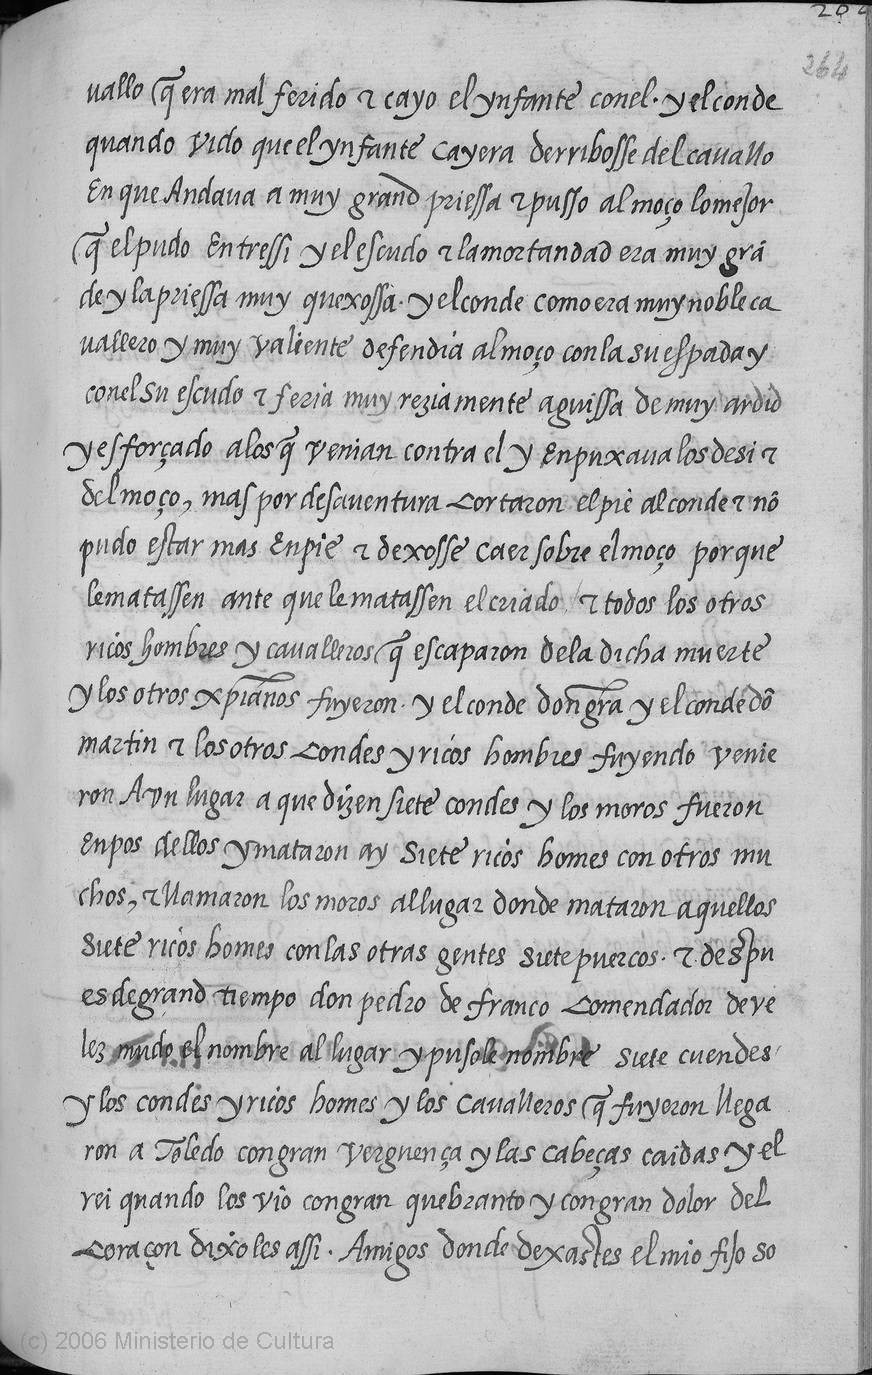 264
vallo q̃ era mal ferido τ cayo el ynfante conel. y el conde
quando vido que el ynfante cayera derribosse del cavallo
En que Andava a muy grand priessa τ pusso al moço lo mejor
q̃ el pudo Entressi y el escudo τ la mortandad era muy grã
de y la priessa muy quexossa. y el conde como era muy noble ca
vallero y muy valiente defendia al moço con la su espada y
conel su escudo τ feria muy reziamente aguissa de muy ardid
y esforçado a los q̃ venian contra el y Enpuxava los de si τ
del moço, mas por desaventura cortaron el pie al conde τ nõ
pudo estar mas Enpie τ dexosse caer sobre el moço porque
le matassen ante que le matassen el criado / τ todos los otros
ricos hombres y cavalleros q̃ escaparon de la dicha muerte
y los otros xp̃ianos fuyeron. y el conde don gr̃a y el conde dõ
martin τ los otros condes y ricos hombres fuyendo venie
ron A vn lugar a que dizen siete condes y los moros fueron
Enpos dellos y mataron ay siete ricos homes con otros mu
chos, τ llamaron los moros al lugar donde mataron aquellos
siete ricos homes con las otras gentes siete puercos. τ despu
es de grand tiempo don pedro de franco comendador de ve
lez mudo el nombre al lugar y pusole nombre siete cuendes
y los condes y ricos homes y los cavalleros q̃ fuyeron llega
ron a Toledo con gran verguença y las cabeças caidas y el
rei quando los vio con gran quebranto y con gran dolor del
coraçon dixoles assi. Amigos donde dexastes el mio fijo so
(c) 2006 Ministerio de Cultura